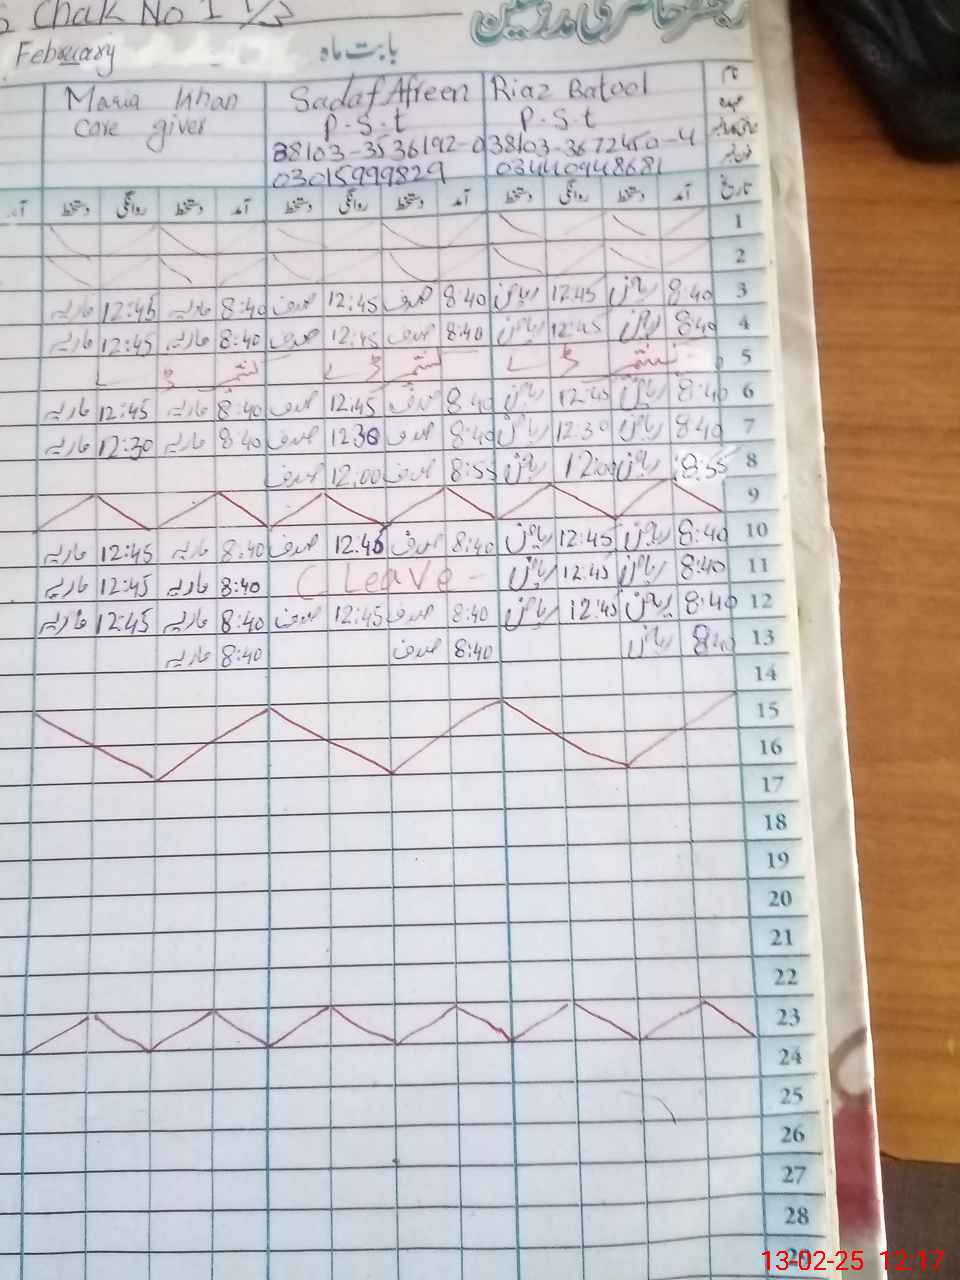 Chak No 1 1/3
رجسٹر حاضری مدرسین
February بابت ماہ
Maria Khan Sadaf Afreen Riaz Batool نام
Care giver P.S.t P.S.t عہدہ
38103-3536192-0 38103-3672450-4
03015999829 03440948681
آمد دستخط روانگی دستخط آمد دستخط روانگی دستخط آمد دستخط روانگی دستخط آمد تاریخ
1
2
ماریہ 12:45 ماریہ 8:40 صدف 12:45 صدف 8:40 ریاض 12:45 ریاض 8:40 3
ماریہ 12:45 ماریہ 8:40 صدف 12:45 صدف 8:40 ریاض 12:45 ریاض 8:40 4
5
ماریہ 12:45 ماریہ 8:40 صدف 12:45 صدف 8:40 ریاض 12:45 ریاض 8:40 6
ماریہ 12:30 ماریہ 8:40 صدف 1230 صدف 8:40 ریاض 12:30 ریاض 8:40 7
صدف 12:00 صدف 8:55 ریاض 12:00 ریاض 8:55 8
9
ماریہ 12:45 ماریہ 8:40 صدف 12:45 صدف 8:40 ریاض 12:45 ریاض 8:40 10
ماریہ 12:45 ماریہ 8:40 C Leave - ریاض 12:45 ریاض 8:40 11
ماریہ 12:45 ماریہ 8:40 صدف 12:45 صدف 8:40 ریاض 12:45 ریاض 8:40 12
ماریہ 8:40 صدف 8:40 ریاض 8:40 13
14
15
16
17
18
19
20
21
22
23
24
25
26
27
28
29
13-02-25 12:17